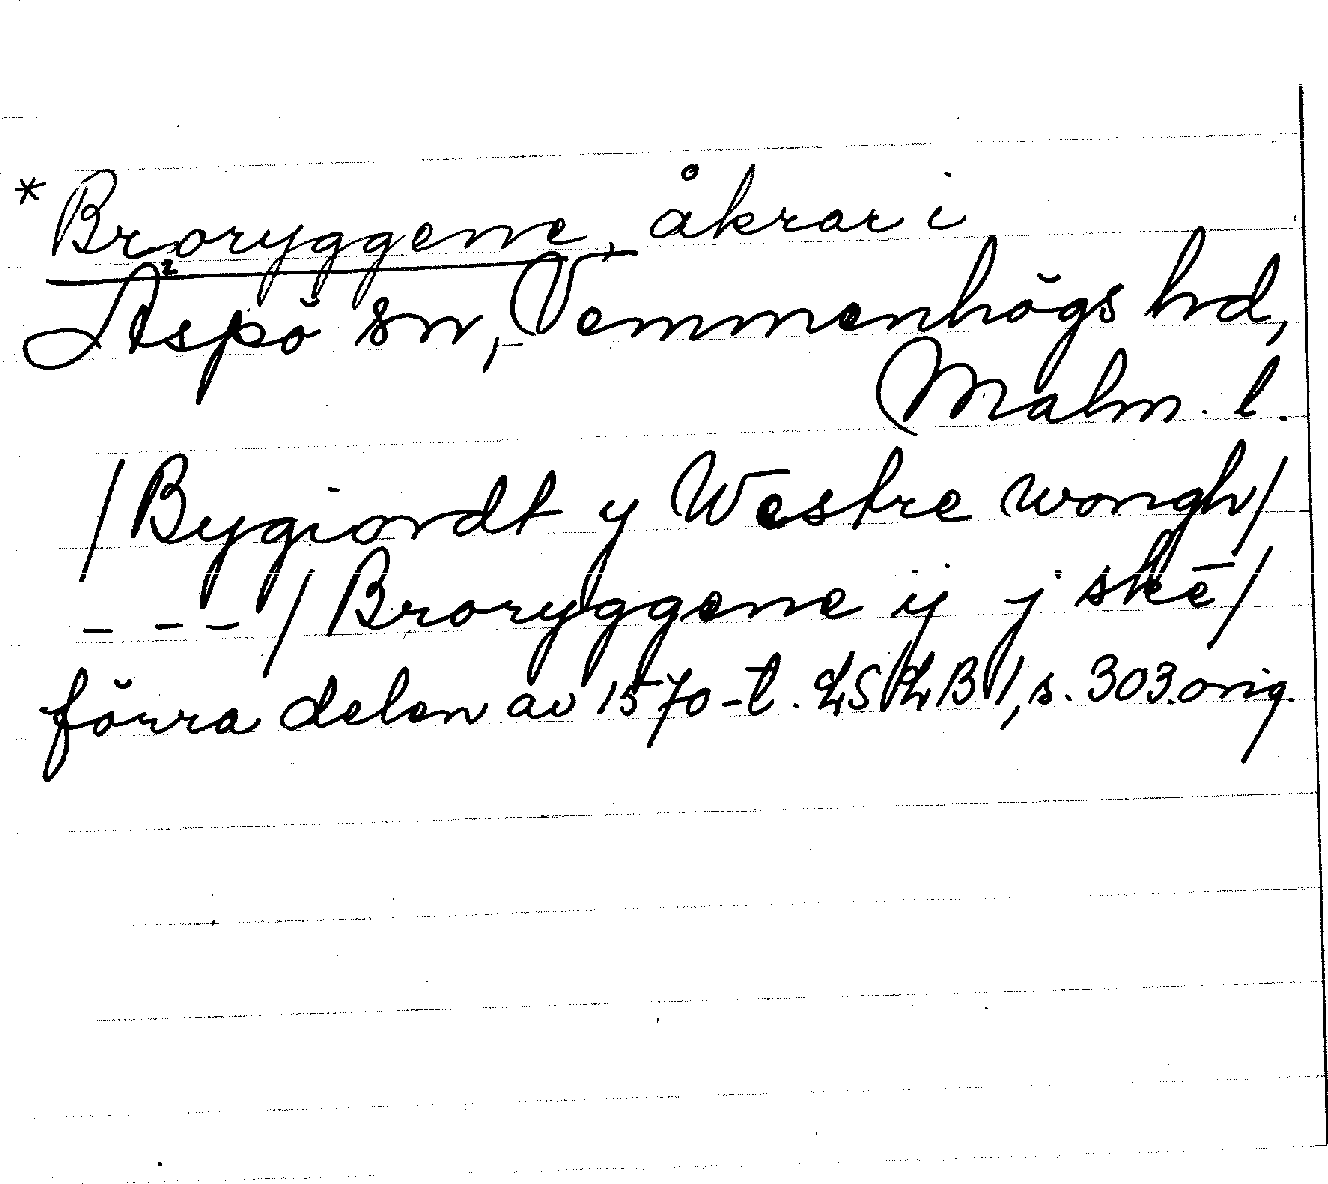 * Broryggene, åkrar i
Äspö sn, Vemmenhögs hd,
Malm. l.
/Bygiordt y Westre wongh/
- - - /Broryggene ij j skē/
förra delen av 1570-t. LSLB 1, s. 303. orig.